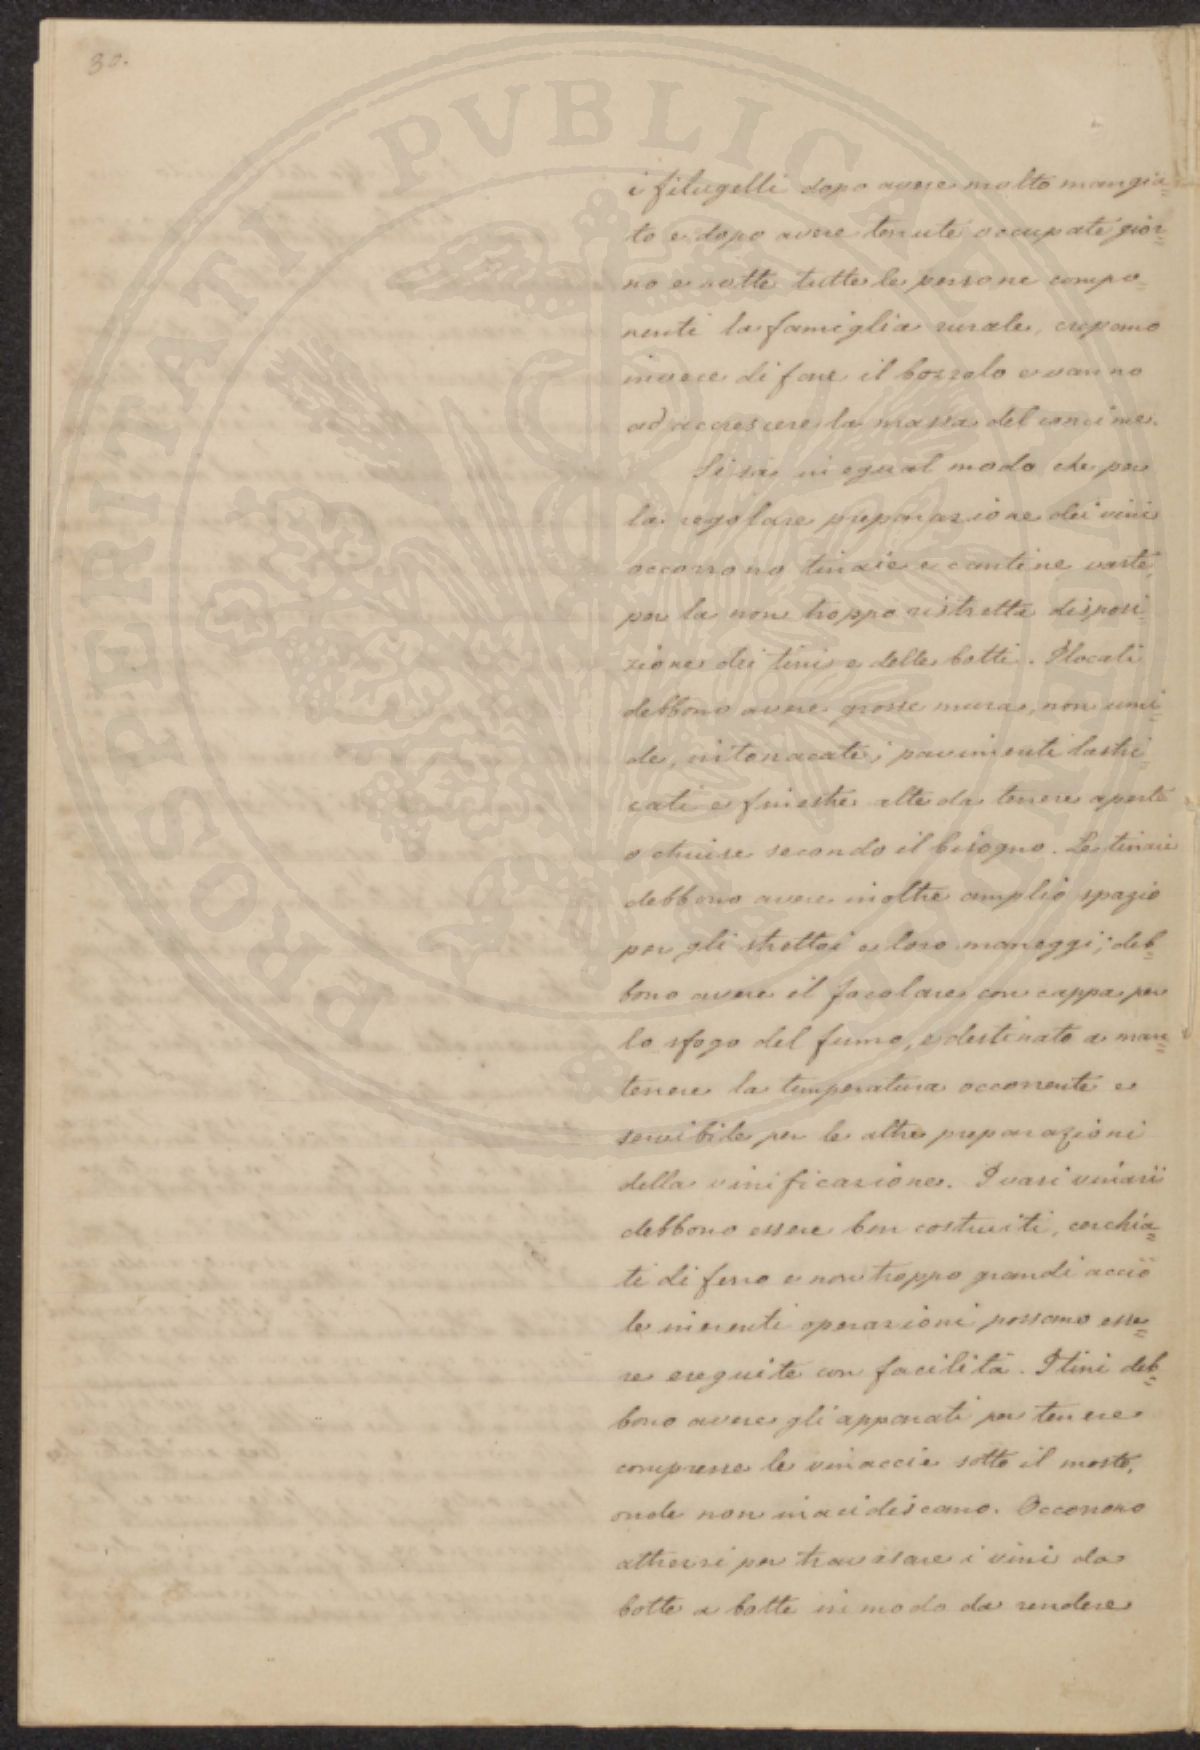 30.
PROSPERITATI PVBLICAE
i filugelli dopo avere molto mangia=
to e dopo avere tenute occupate gior=
no e notte tutte le persone compo=
nenti la famiglia rurale, crepano
invece di fare il bozzolo e vanno
ad accrescere la massa del concime.
Si sa in egual modo che per
la regolare preparazione dei vini
occorrono tinaie e cantine vaste,
per la non troppo ristretta disposi=
zione dei tini e delle botti. I locali
debbono avere grosse mura, non umi=
de, intonacate; pavimenti lastri=
cati e finestre alte da tenere aperte
o chiuse secondo il bisogno. Le tinaie
debbono avere inoltre amplio spazio
per gli strettoi e loro maneggi; deb=
bono avere il focolare con cappa per
lo sfogo del fumo, e destinato a man=
tenere la temperatura occorrente e
servibile per le altre preparazioni
della vinificazione. I vasi vinarii
debbono essere ben costruiti, cerchia=
ti di ferro e non troppo grandi acciò
le inerenti operazioni possano esse=
re eseguite con facilità. I tini deb=
bono avere gli apparati per tenere
compresse le vinaccie sotto il mosto,
onde non inacidiscano. Occorrono
attrezzi per travasare i vini da
botte a botte in modo da rendere